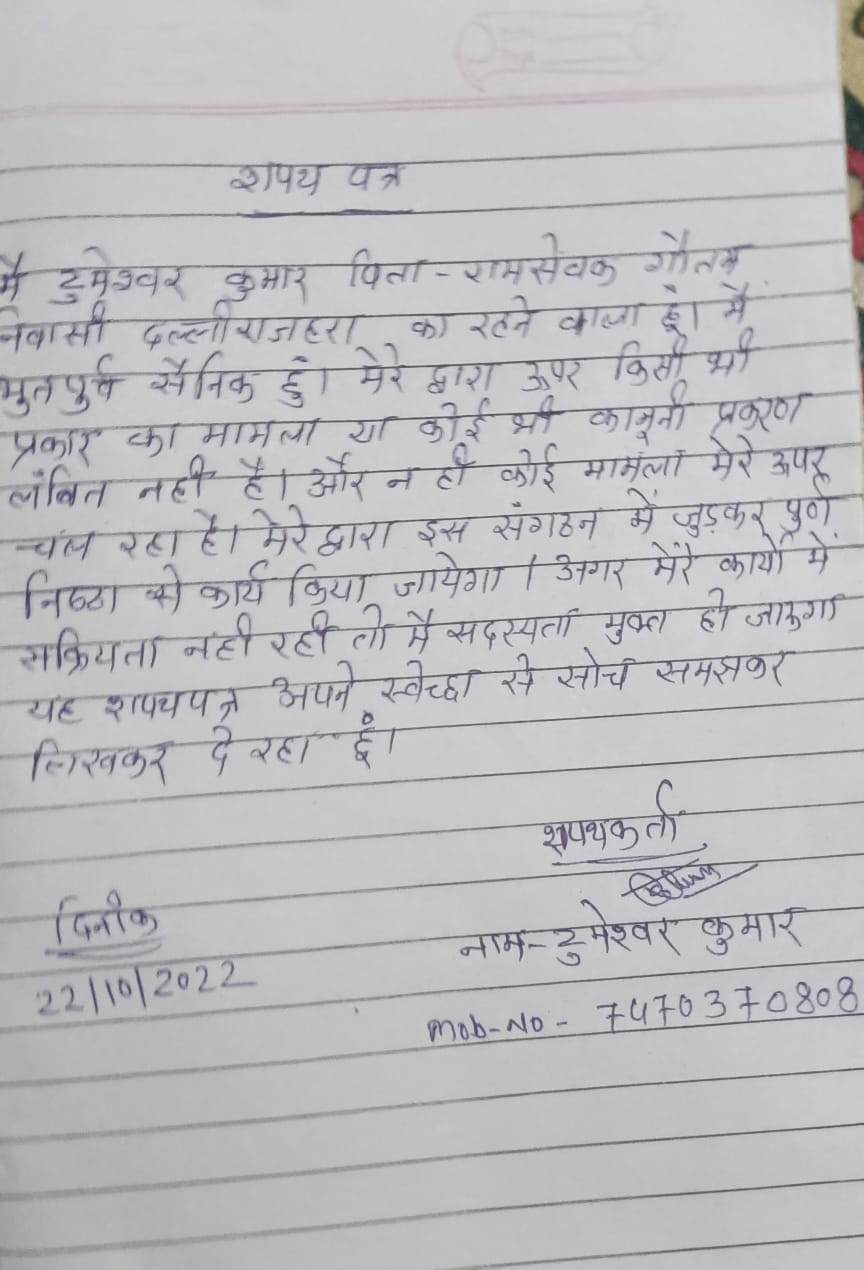 शपथ पत्र
मै टुमेश्वर कुमार पिता - रामसेवक गौतम
निवासी दल्लीराजहरा का रहने वाला हूं। मैं
भुतपुर्व सैनिक हुं। मेरे द्वारा ऊपर किसी भी
प्रकार का मामला या कोई भी कानूनी प्रकरण
लंबित नही है। और न ही कोई मामला मेरे ऊपर
चल रहा है। मेरे द्वारा इस संगठन में जुड़कर पुर्ण
निष्ठा से कार्य किया जायेगा। अगर मेरे कार्यो में
सक्रियता नही रही तो मै सदस्यता मुक्त हो जाऊगा
यह शपथपत्र अपने स्वेच्छा से सोच समझकर
लिखकर दे रहा हूं।
शपथकर्ता
दिनांक
नाम - टुमेश्वर कुमार
22/10/2022
mob-No - 7470370808